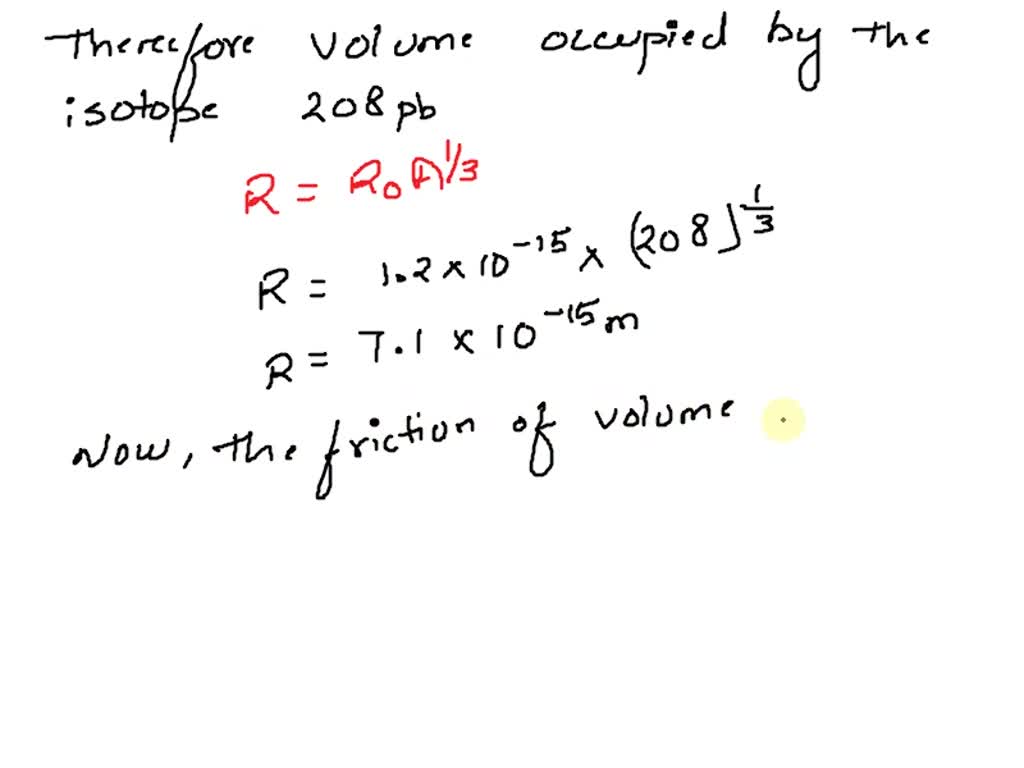 Therefore volume occupied by the
isotope 208 pb
R = R₀A^1/3
R = 1.2 × 10^-15 × (208)^1/3
R = 7.1 × 10^-15 m
Now, the friction of volume